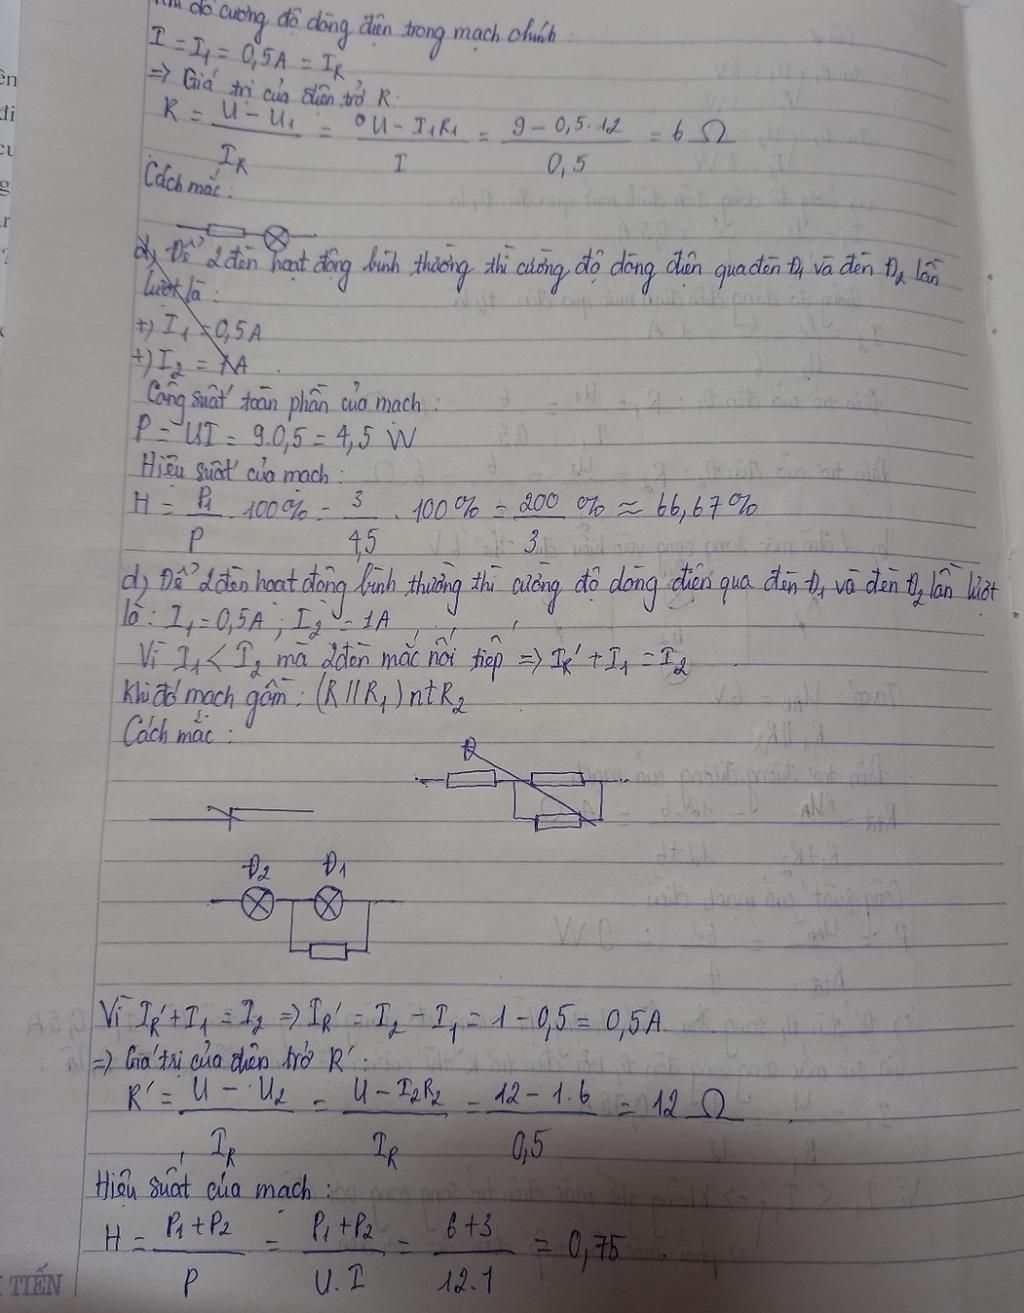 Khi đó cường độ dòng điện trong mạch chính :
I = I₁ = 0,5A = I_R
=> Giá trị của điện trở R:
R = (U - U₁)/I_R = (U - I₁R₁)/I = (9 - 0,5.12)/0,5 = 6 Ω
Cách mắc:
d) Để 2 đèn hoạt động bình thường thì cường độ dòng điện qua đèn Đ₁ và đèn Đ₂ lần
lượt là :
+) I₁ = 0,5A
+) I₂ = 1A
Công suất toàn phần của mạch :
P = UI = 9.0,5 = 4,5 W
Hiệu suất của mạch :
H = P₁/P . 100% = 3/4,5 . 100% = 200/3 % ≈ 66,67%
d) Để 2 đèn hoạt động bình thường thì cường độ dòng điện qua đèn Đ₁ và đèn Đ₂ lần lượt
là : I₁ = 0,5A ; I₂ = 1A
Vì I₁ < I₂ mà 2 đèn mắc nối tiếp => I_R' + I₁ = I₂
Khi đó mạch gồm : (R // R₁) nt R₂
Cách mắc :
Đ₂ Đ₁
Vì I_R' + I₁ = I₂ => I_R' = I₂ - I₁ = 1 - 0,5 = 0,5A
=> Giá trị của điện trở R' :
R' = (U - U₂)/I_R = (U - I₂R₂)/I_R = (12 - 1.6)/0,5 = 12 Ω
Hiệu suất của mạch :
H = (P₁ + P₂)/P = (P₁ + P₂)/(U.I) = (6 + 3)/(12.1) = 0,75
TIẾN